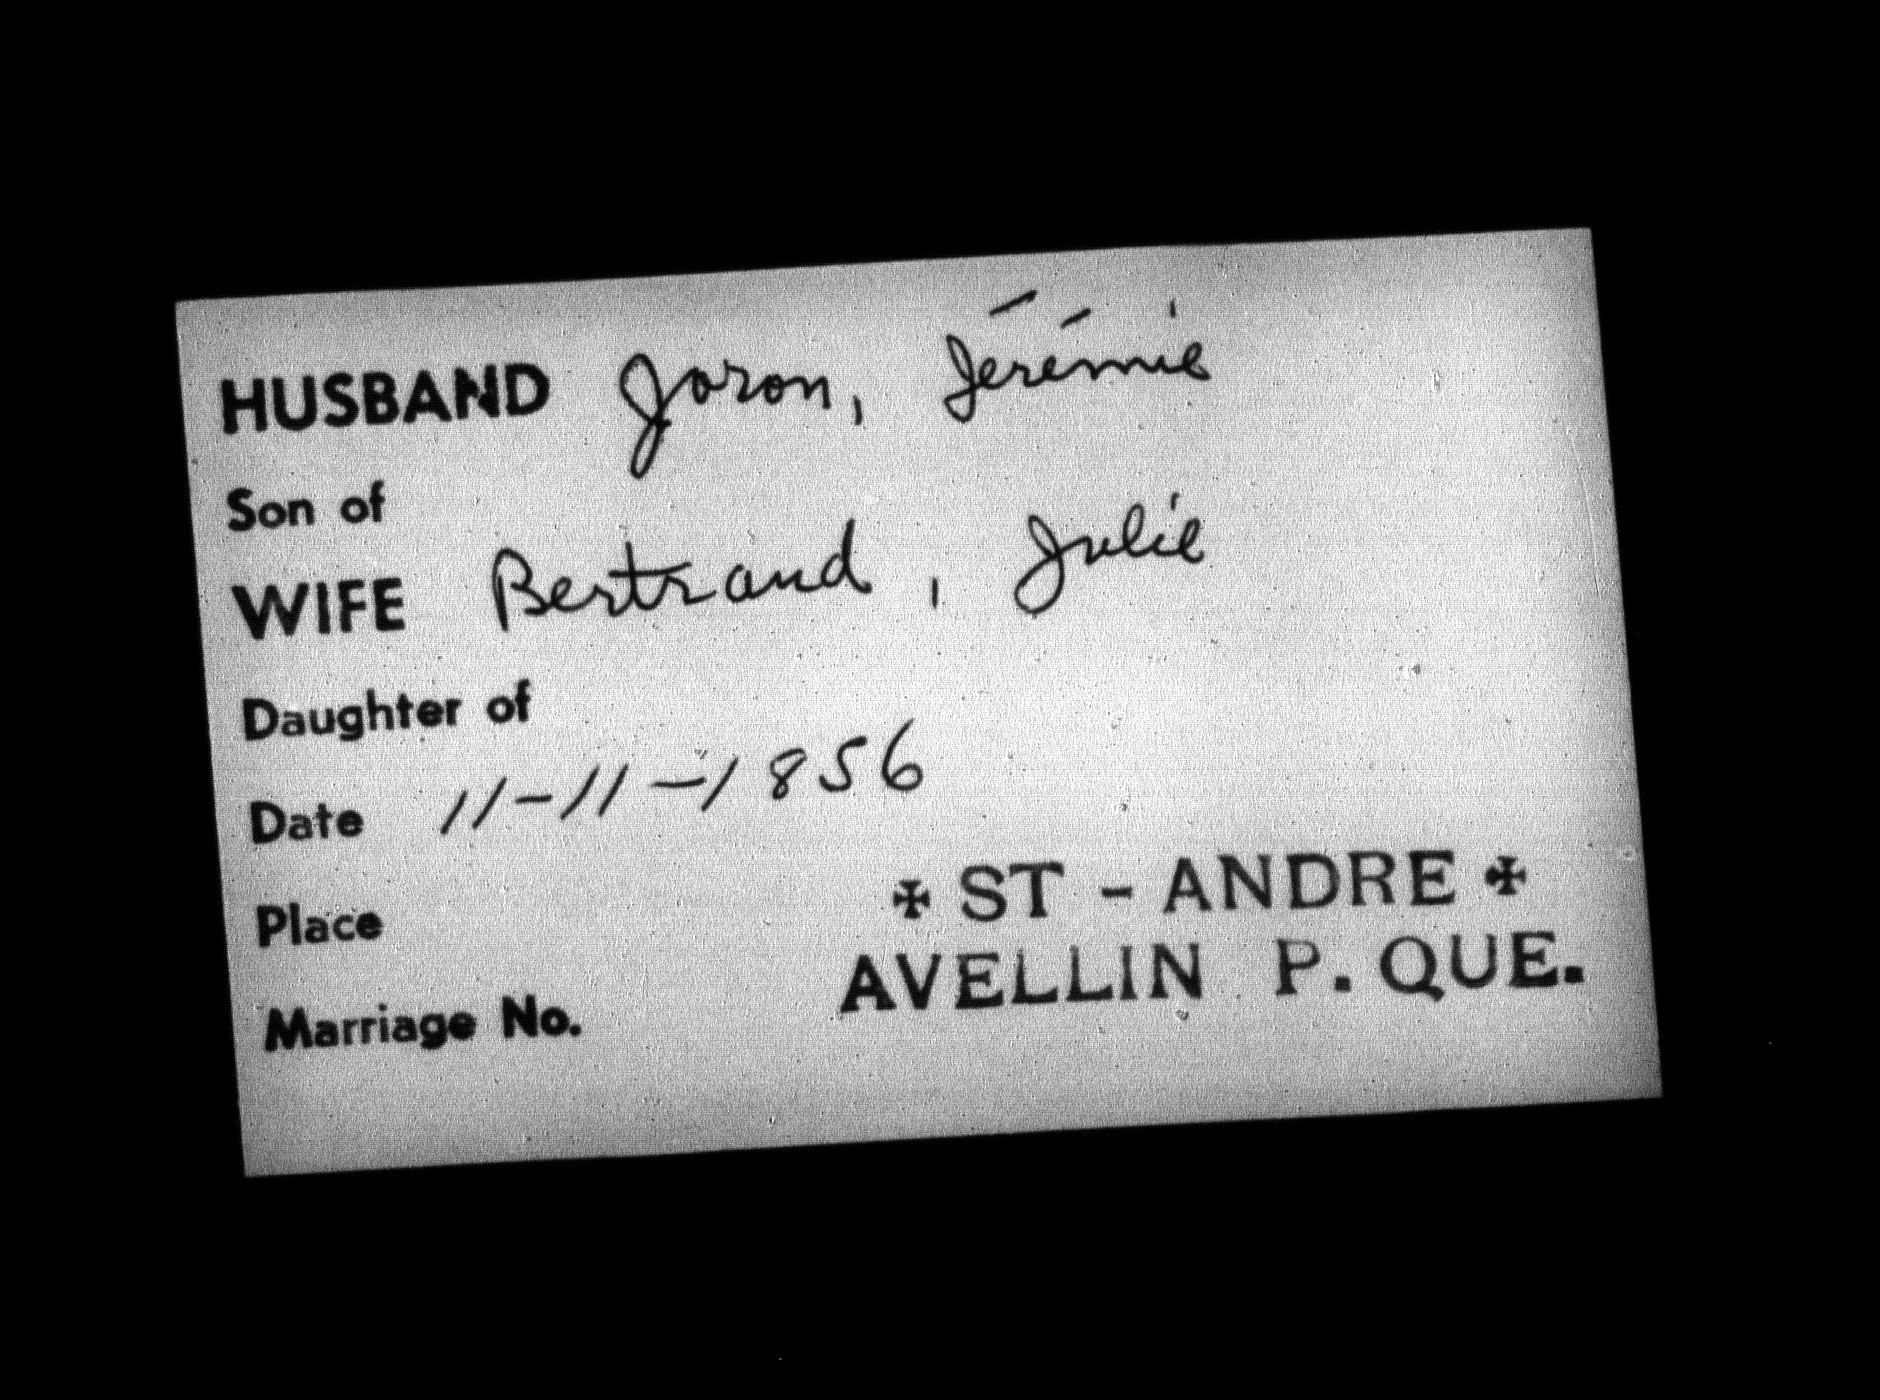 HUSBAND Joron, Jérémie
Son of
WIFE Bertrand, Julie
Daughter of
Date 11-11-1856
Place ✠ ST - ANDRE ✠
AVELLIN P. QUE.
Marriage No.